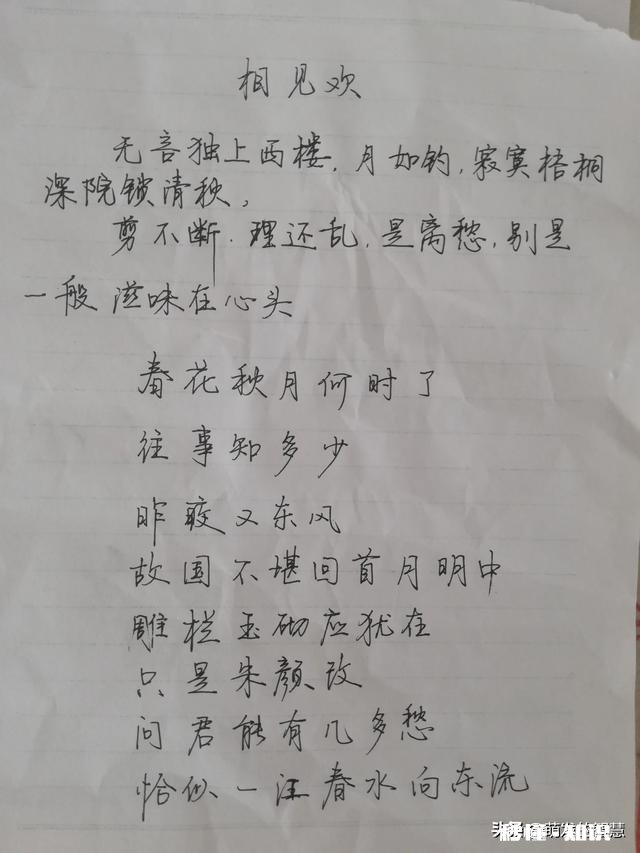 相见欢
无言独上西楼.月如钓,寂寞梧桐
深院锁清秋,
剪不断.理还乱.是离愁,别是
一般滋味在心头
春花秋月何时了
往事知多少
昨夜又东风
故国不堪回首月明中
雕栏玉砌应犹在
只是朱颜改
问君能有几多愁
恰似一江春水向东流